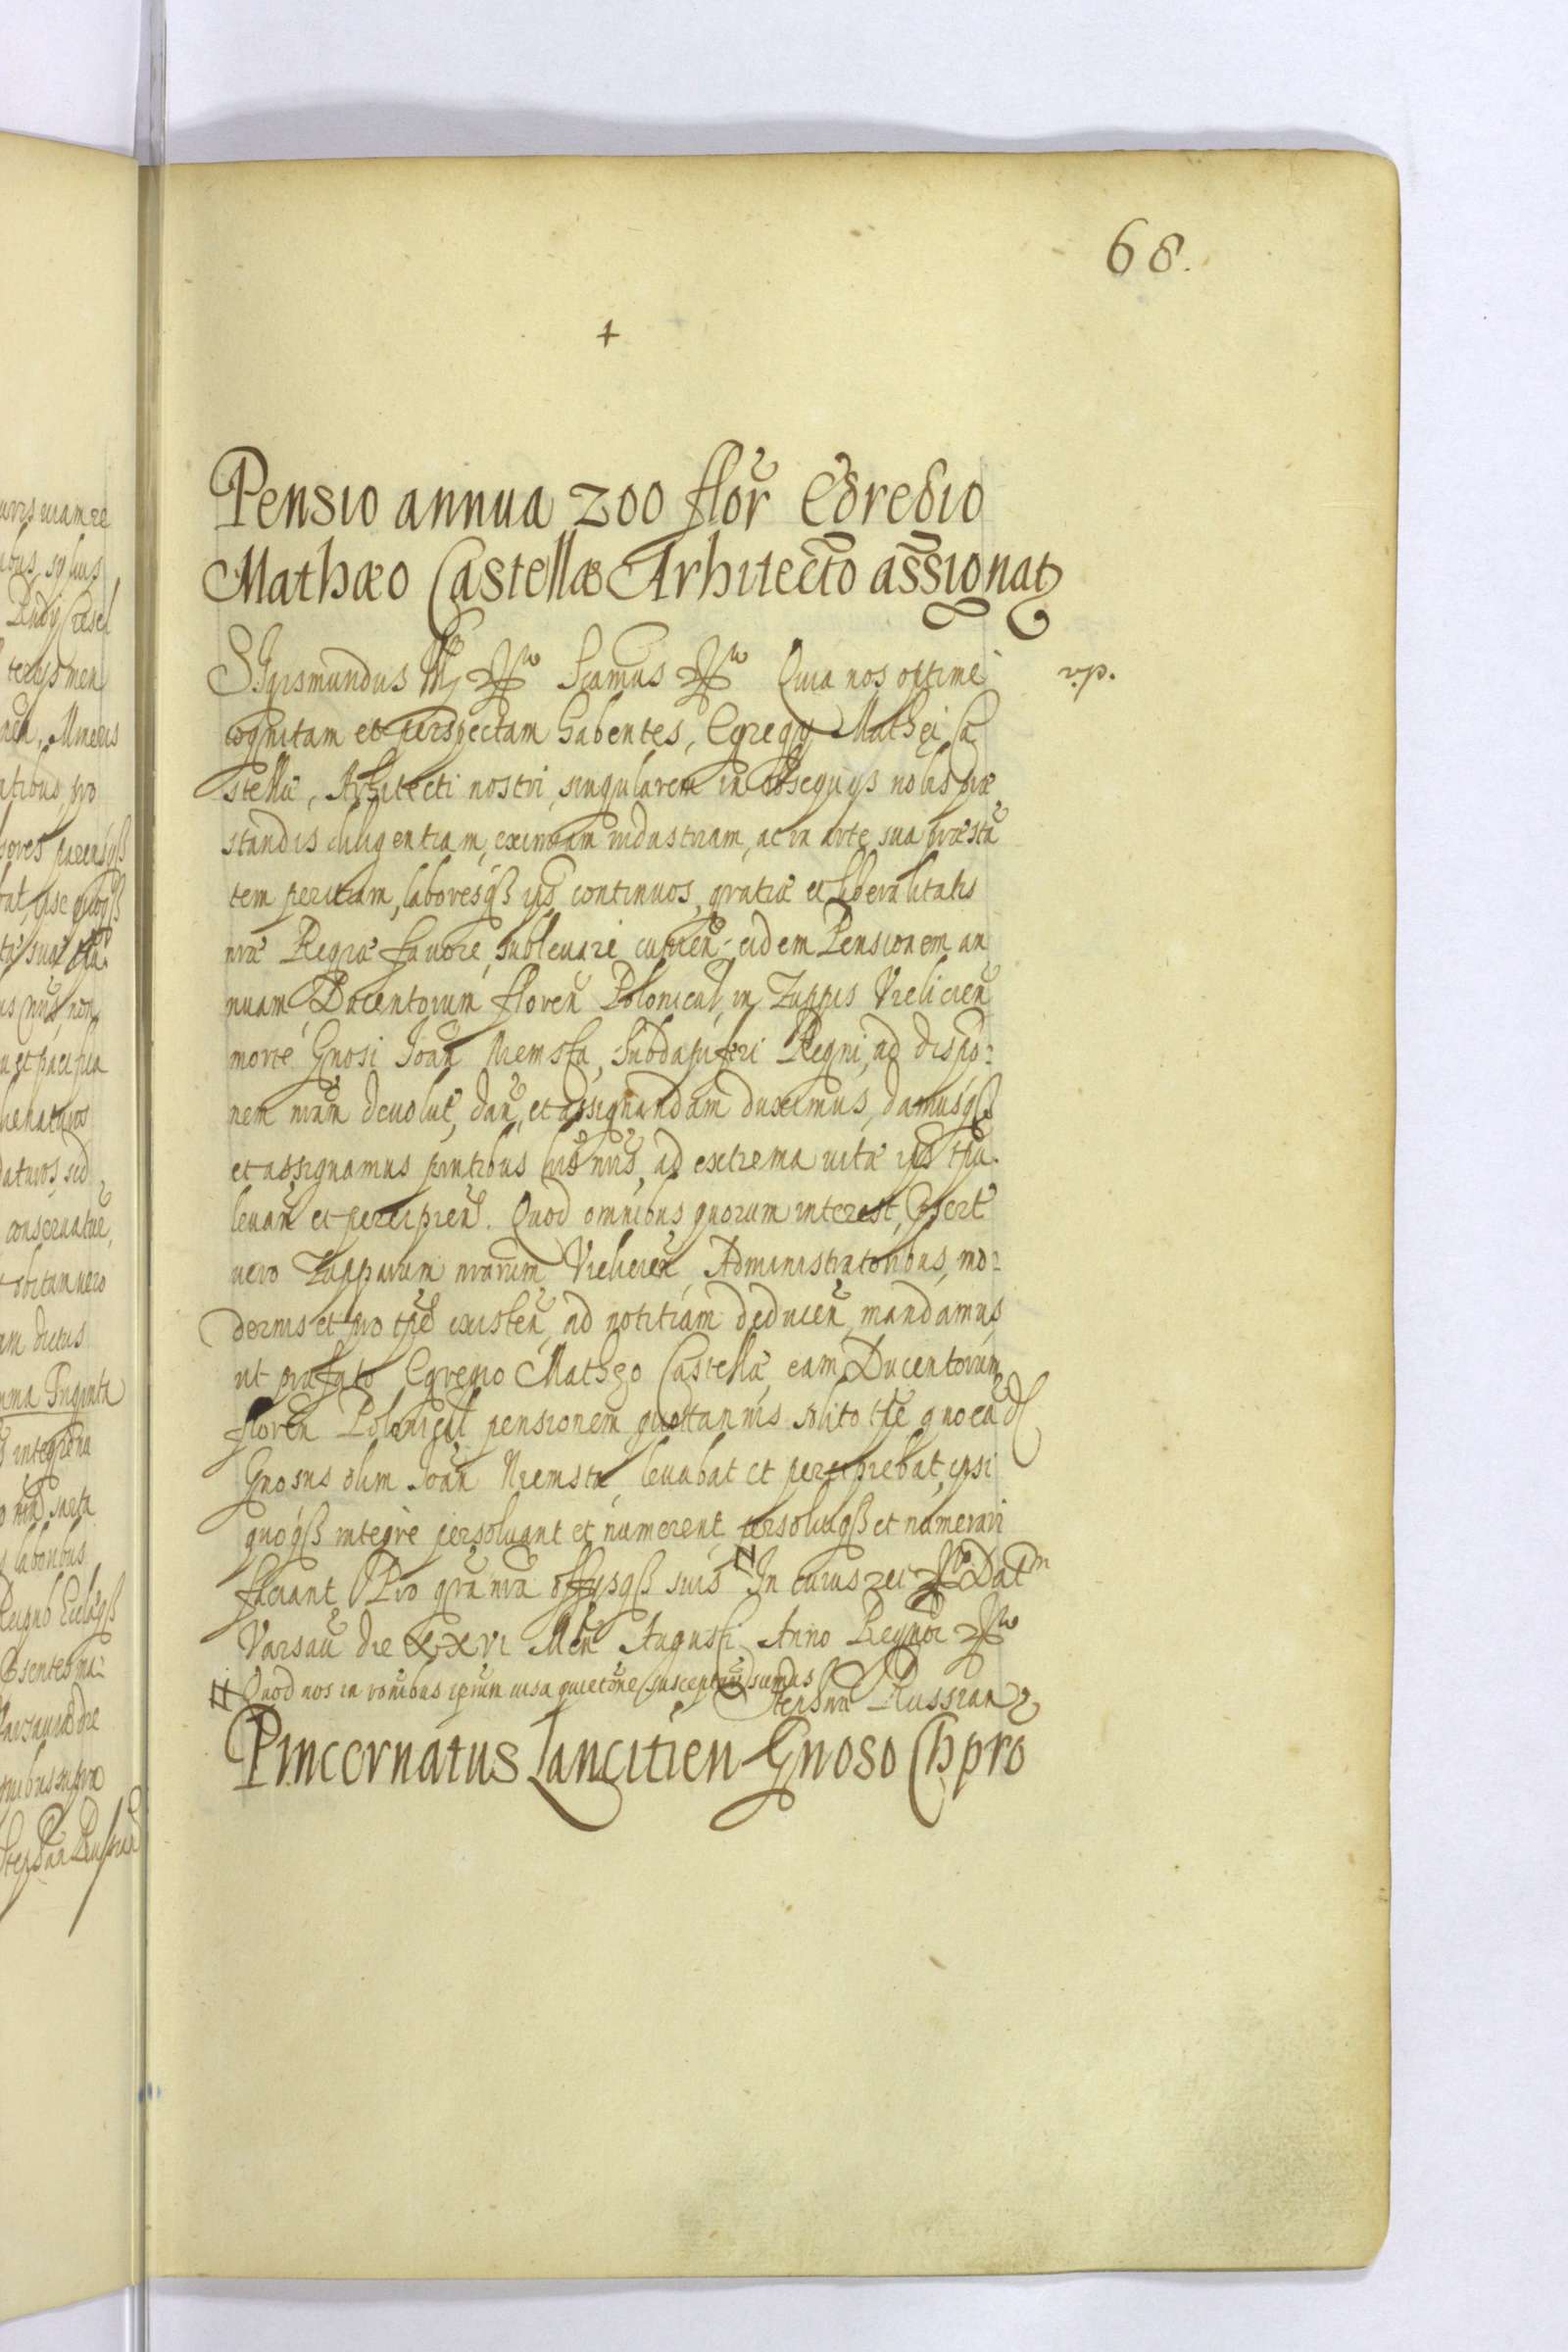 68.
+
Pensio annua 200 flor Egregio
Mathæo Castellæ Arhitecto assignat
Sigismundus III Scamus Quia nos optime
cognitam et perspectam habentes, Egregij Mathęi Ca
stellæ, Arhitecti nostri, singularem in obsequijs nobis præ
standis diligentiam, eximiam industriam, ac in arte sua præsta
tem peritiam, laboresqß continuos, gratiæ et liberalitatis
nræ Regiæ favore, sublevare cupien, eidem Pensionem an
nuam Ducentorum floren Polonical, in Zuppis Vielicien
morte Gnosi Joan Niemsta, Subdapiferi Regni, ad dispo:
nem nram devolut, dan, et assignandam duximus, damusqß
et assignamus pntibus lris nris, ad extrema vitæ ipis tpa
levan et percipien. Quod omnibus quorum interest, psert
vero Zupparum nrarum Vielicien Administratoribus, mo:
dernis et pro tpe existen, ad notitiam deducen, mandamus,
ut præfato Egregio Mathęo Castellæ, eam Ducentorum
floren Polonical pensionem quottannis solito tpe quo ea
Gnosus olim Joan Niemsta, levabat et percipiebat, ipsi
quoqß integre persolvant et numerent persolviqß et numerari
faciant Pro gra nra offysqß suis In cuius rei Datm
Varsav die XXVI Men Augusti Anno Regnor
Quod nos in ronibus ipsum visa quietone suscepturi sumus
Pincernatus Lancitien Gnoso Chpro